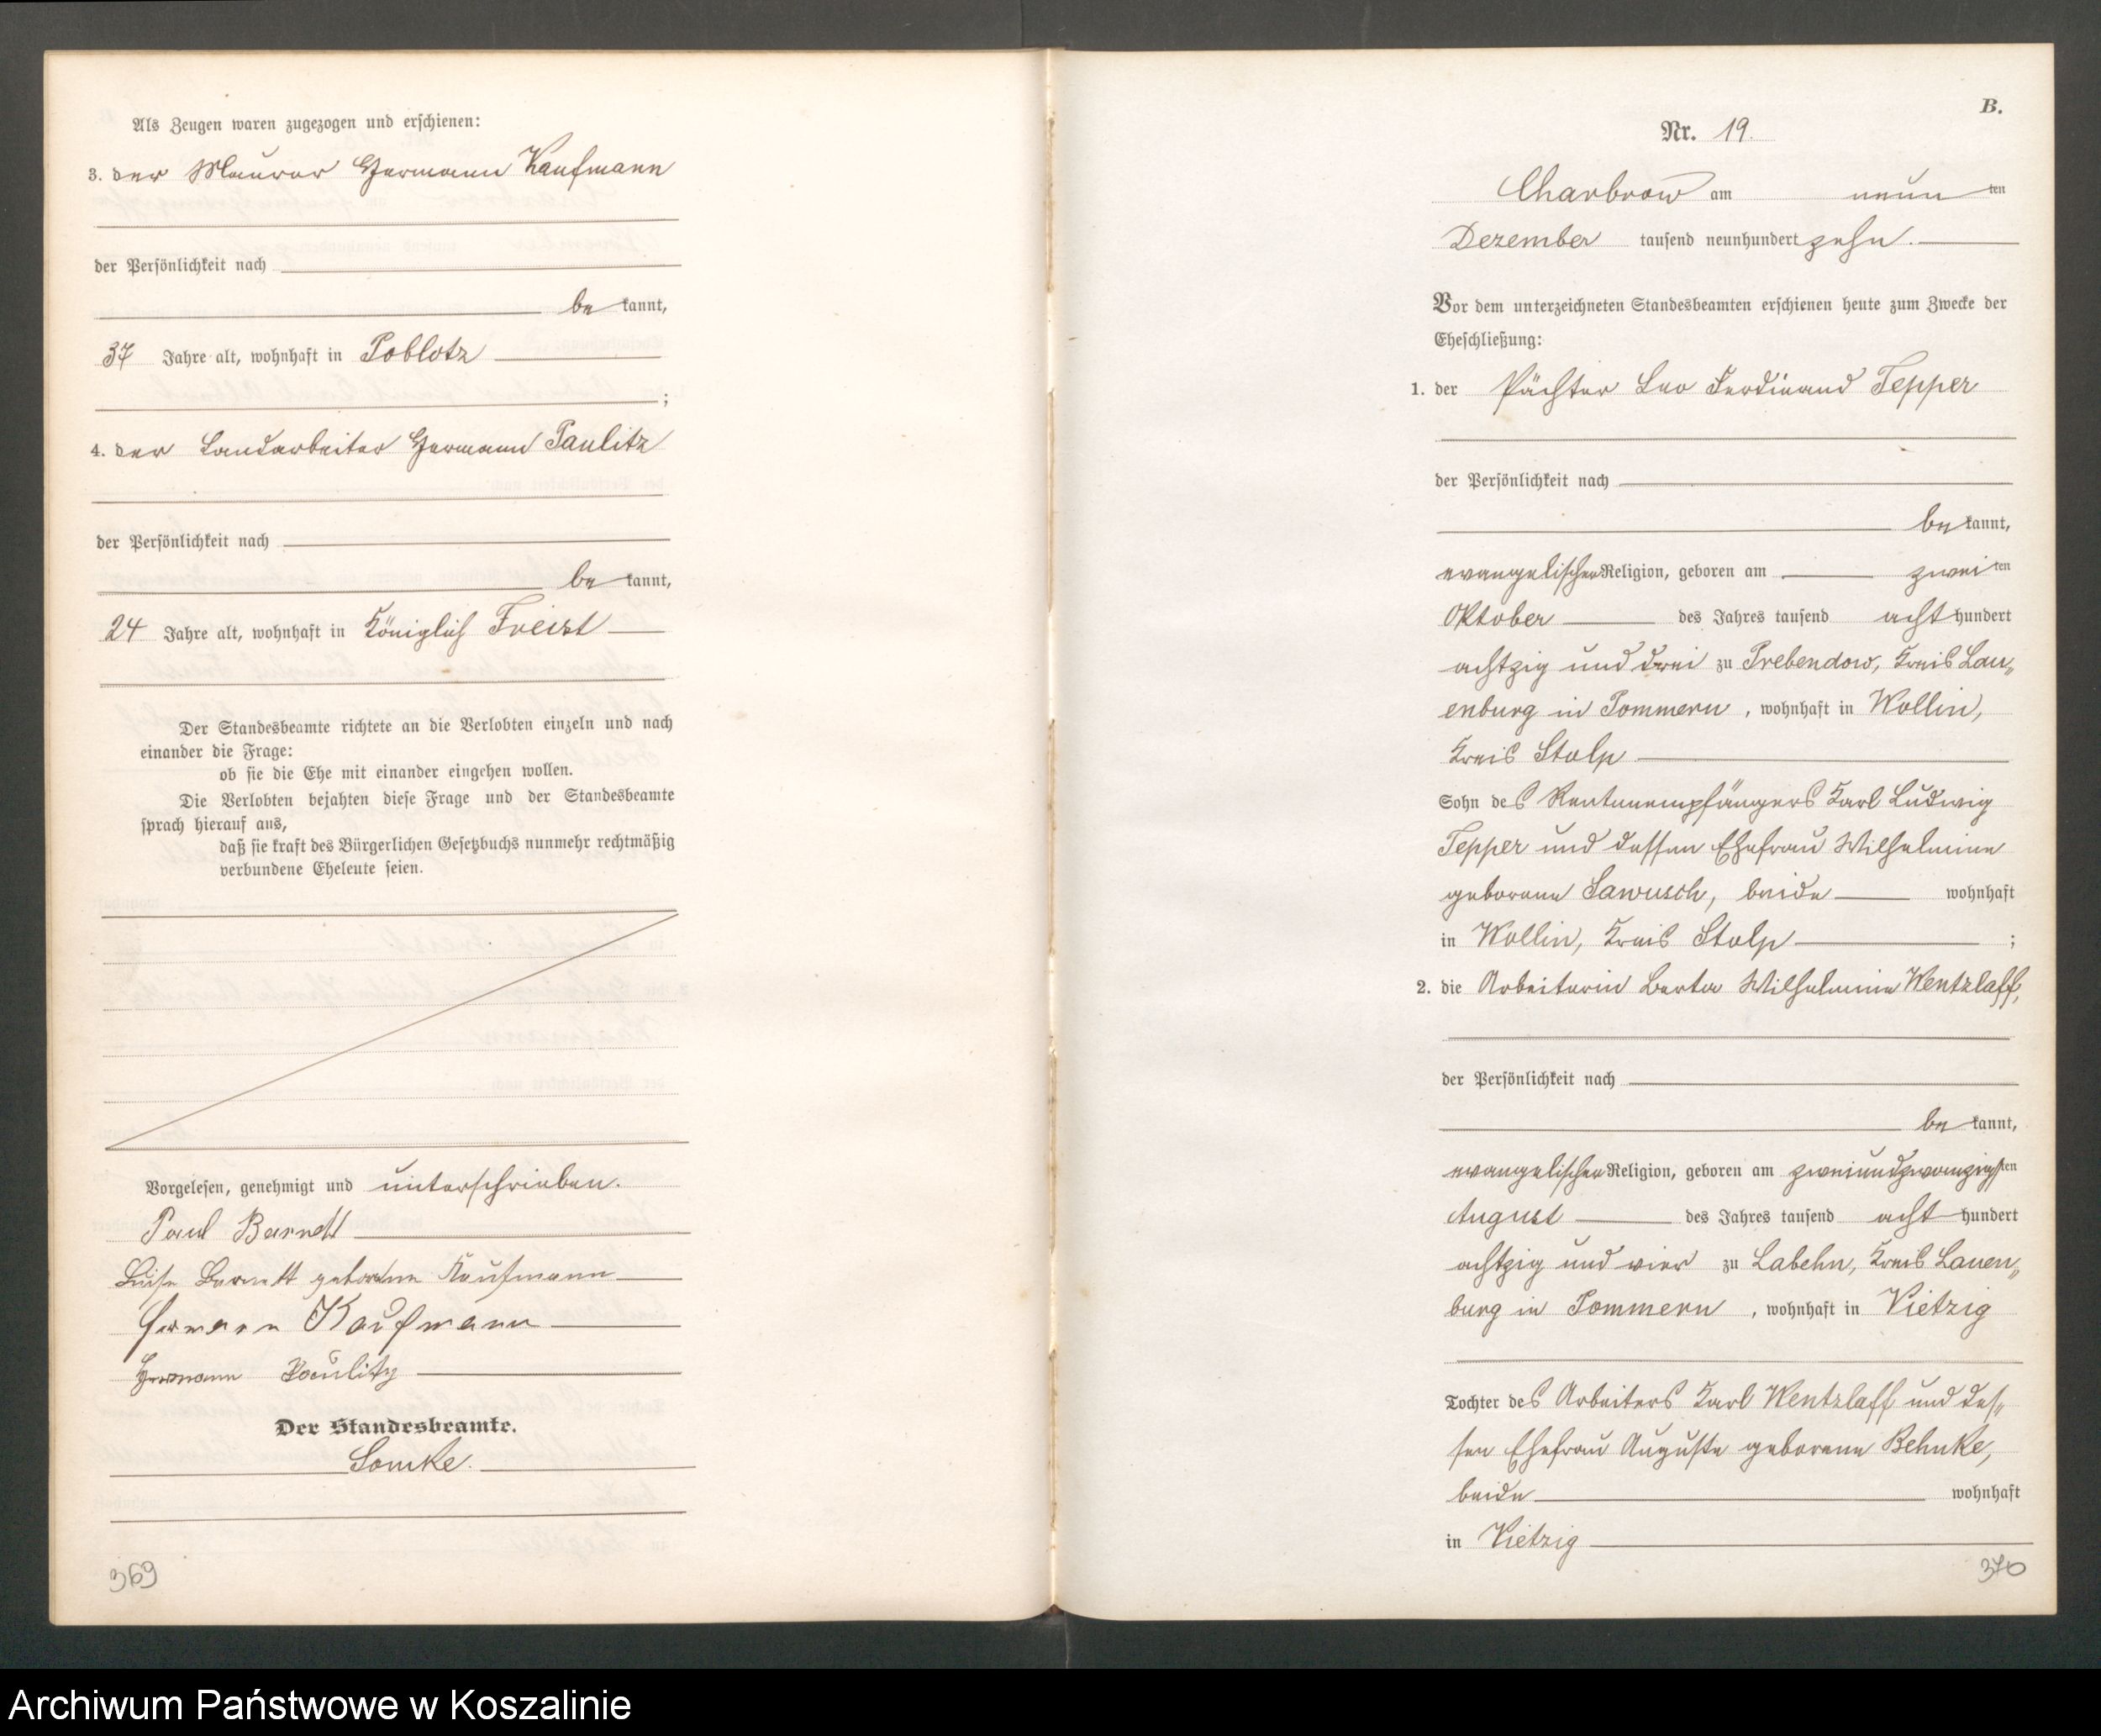 Als Zeugen waren zugezogen und erschienen:
3. der Maurer Hermann Kaufmann
der Persönlichkeit nach
be kannt,
37 Jahre alt, wohnhaft in Poblotz
;
4. der Landarbeiter Hermann Paulitz
der Persönlichkeit nach
be kannt,
24 Jahre alt, wohnhaft in Königlich Freist
Der Standesbeamte richtete an die Verlobten einzeln und nach
einander die Frage:
ob sie die Ehe mit einander eingehen wollen.
Die Verlobten bejahten diese Frage und der Standesbeamte
sprach hierauf aus,
daß sie kraft des Bürgerlichen Gesetzbuchs nunmehr rechtmäßig
verbundene Eheleute seien.
Vorgelesen, genehmigt und unterschrieben.
Paul Barnett
Luise Barnett geborene Kaufmann
Hermann Kaufmann
Hermann Paulitz
Der Standesbeamte.
369
B.
Nr. 19.
Charbrow am neun ten
Dezember tausend neunhundert zehn.
Vor dem unterzeichneten Standesbeamten erschienen heute zum Zwecke der
Eheschließung:
1. der Pächter Leo Ferdinand Tepper
der Persönlichkeit nach
be kannt,
evangelischer Religion, geboren am zwei ten
Oktober des Jahres tausend acht hundert
achtzig und drei zu Prebendow, Kreis Lau„
enburg in Pommern, wohnhaft in Wollin,
Kreis Stolp
Sohn des Rentenempfängers Karl Ludwig
Tepper und dessen Ehefrau Wilhelmine
geborene Sawusch, beide wohnhaft
in Wollin, Kreis Stolp ;
2. die Arbeiterin Berta Wilhelmine Wentzlaff,
der Persönlichkeit nach
be kannt,
evangelischer Religion, geboren am zweiundzwanzigsten
August des Jahres tausend acht hundert
achtzig und vier zu Labehn, Kreis Lauen„
burg in Pommern, wohnhaft in Vietzig
Tochter des Arbeiters Karl Wentzlaff und des„
sen Ehefrau Auguste geborene Behnke,
beide wohnhaft
in Vietzig
370
Archiwum Państwowe w Koszalinie